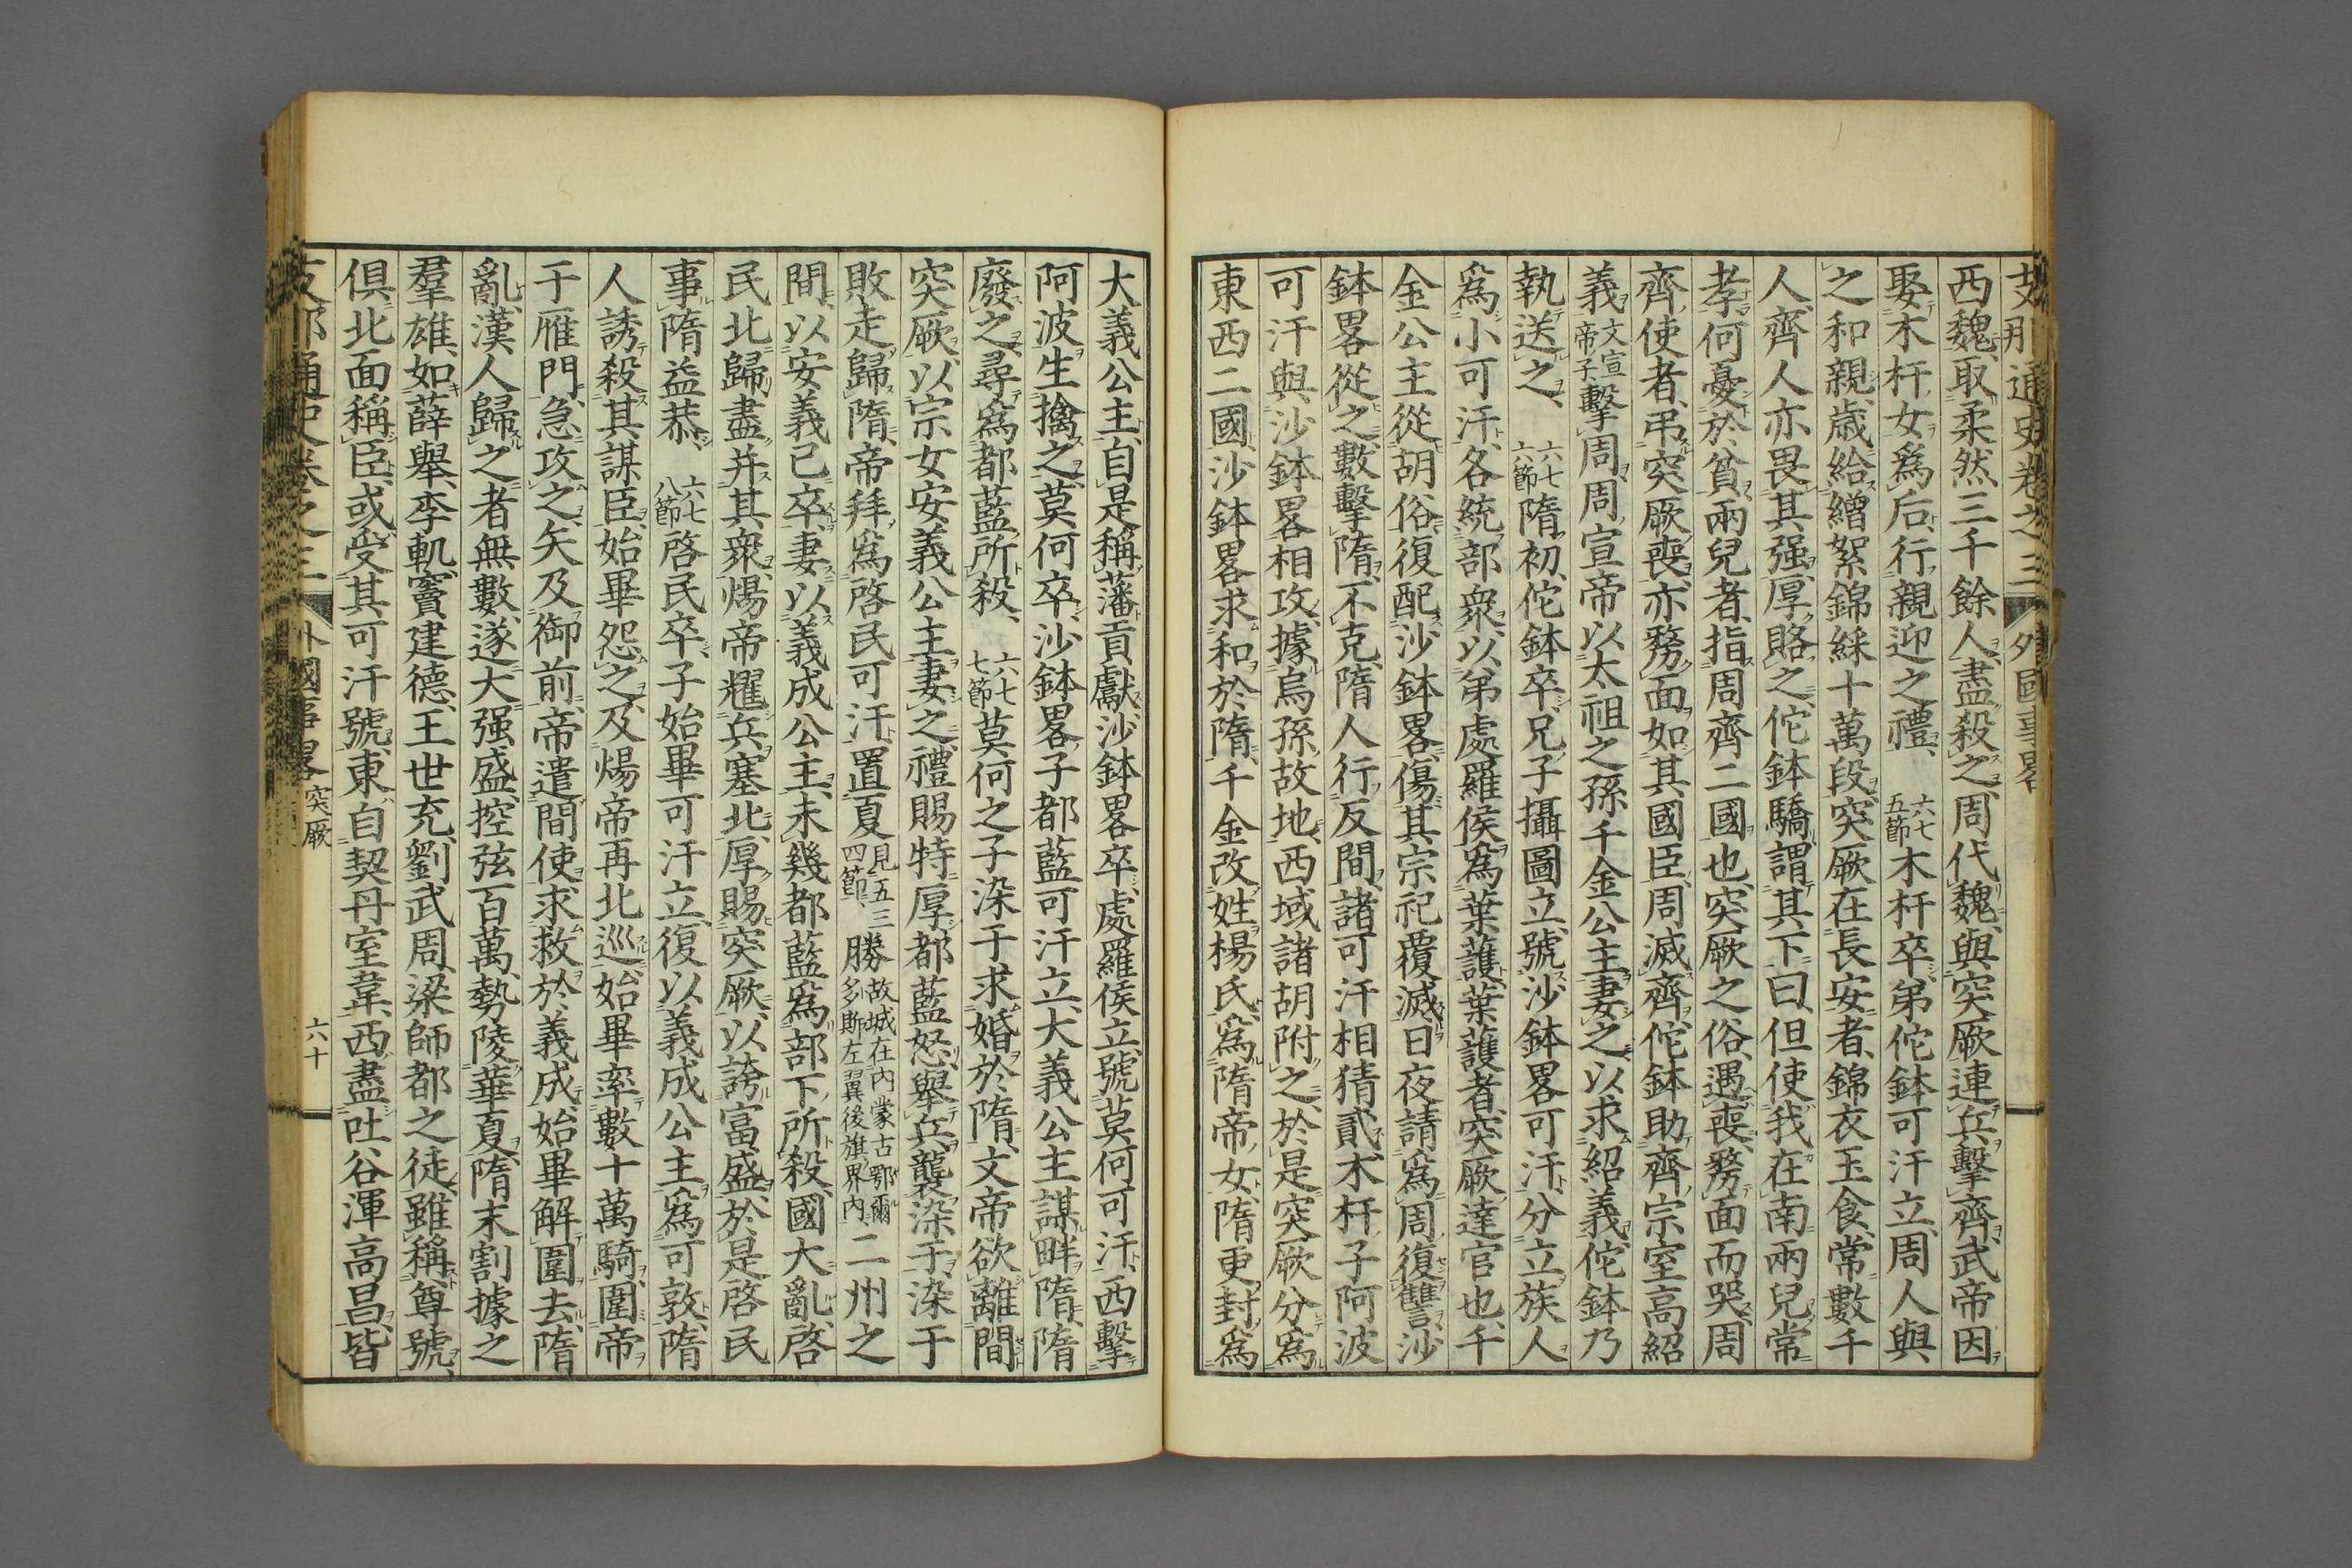 支那通史卷之三 外國事畧
西魏、取柔然三千餘人、盡殺之、周代魏、與突厥連兵擊齊、武帝因
娶木杆女爲后、行親迎之禮、六七五節木杆卒、弟佗鉢可汗立、周人與
之和親、歳給繒絮錦綵十萬段、突厥在長安者、錦衣玉食、常數千
人、齊人亦畏其强、厚賂之、佗鉢驕、謂其下曰、但使我在南兩兒常
孝、何憂於貧、兩兒者、指周齊二國也、突厥之俗、遇喪、剺面而哭、周
齊使者、弔突厥喪、亦剺面如其國臣、周滅齊、佗鉢助齊宗室高紹
義文宣帝子、擊周、周宣帝以太祖之孫千金公主妻之、以求紹義、佗鉢乃
執送之、六七六節隋初、佗鉢卒、兄子攝圖立、號沙鉢畧可汗、分立族人
爲小可汗、各統部衆、以弟處羅侯爲葉護、葉護者、突厥達官也、千
金公主從胡俗、復配沙鉢畧、傷其宗祀覆滅、日夜請爲周復讐、沙
鉢畧從之、數擊隋、不克、隋人行反間、諸可汗相猜貳、木杆子阿波
可汗與沙鉢畧相攻、據烏孫故地、西域諸胡附之、於是突厥分爲
東西二國、沙鉢畧求和於隋、千金改姓楊氏、爲隋帝女、隋更封爲
大義公主、自是稱藩貢獻、沙鉢畧卒、處羅侯立、號莫何可汗、西擊
阿波生擒之、莫何卒、沙鉢畧子都藍可汗立、大義公主謀畔隋、隋
廢之、尋爲都藍所殺、六七七節莫何之子染于求婚於隋、文帝欲離間
突厥、以宗女安義公主妻之、禮賜特厚、都藍怒、舉兵襲染于、染于
敗走歸隋、帝拜爲啓民可汗、置夏見五三四節、勝故城在內蒙古鄂爾多斯左翼後旗界內、二州之
間、以安義已卒、妻以義成公主、未幾都藍爲部下所殺、國大亂、啓
民北歸、盡并其衆、煬帝耀兵塞北、厚賜突厥、以誇富盛、於是啓民
事隋益恭、六七八節啓民卒、子始畢可汗立、復以義成公主爲可敦、隋
人誘殺其謀臣、始畢怨之、及煬帝再北巡、始畢率數十萬騎、圍帝
于雁門、急攻之、矢及御前、帝遣間使求救於義成、始畢解圍去、隋
亂、漢人歸之者無數、遂大强盛、控弦百萬、勢陵華夏、隋末割據之
羣雄、如薛舉、李軌、竇建德、王世充、劉武周、梁師都之徒、雖稱尊號、
俱北面稱臣、或受其可汗號、東自契丹室韋、西盡吐谷渾高昌、皆
支那通史卷之三 外國事畧 突厥 六十